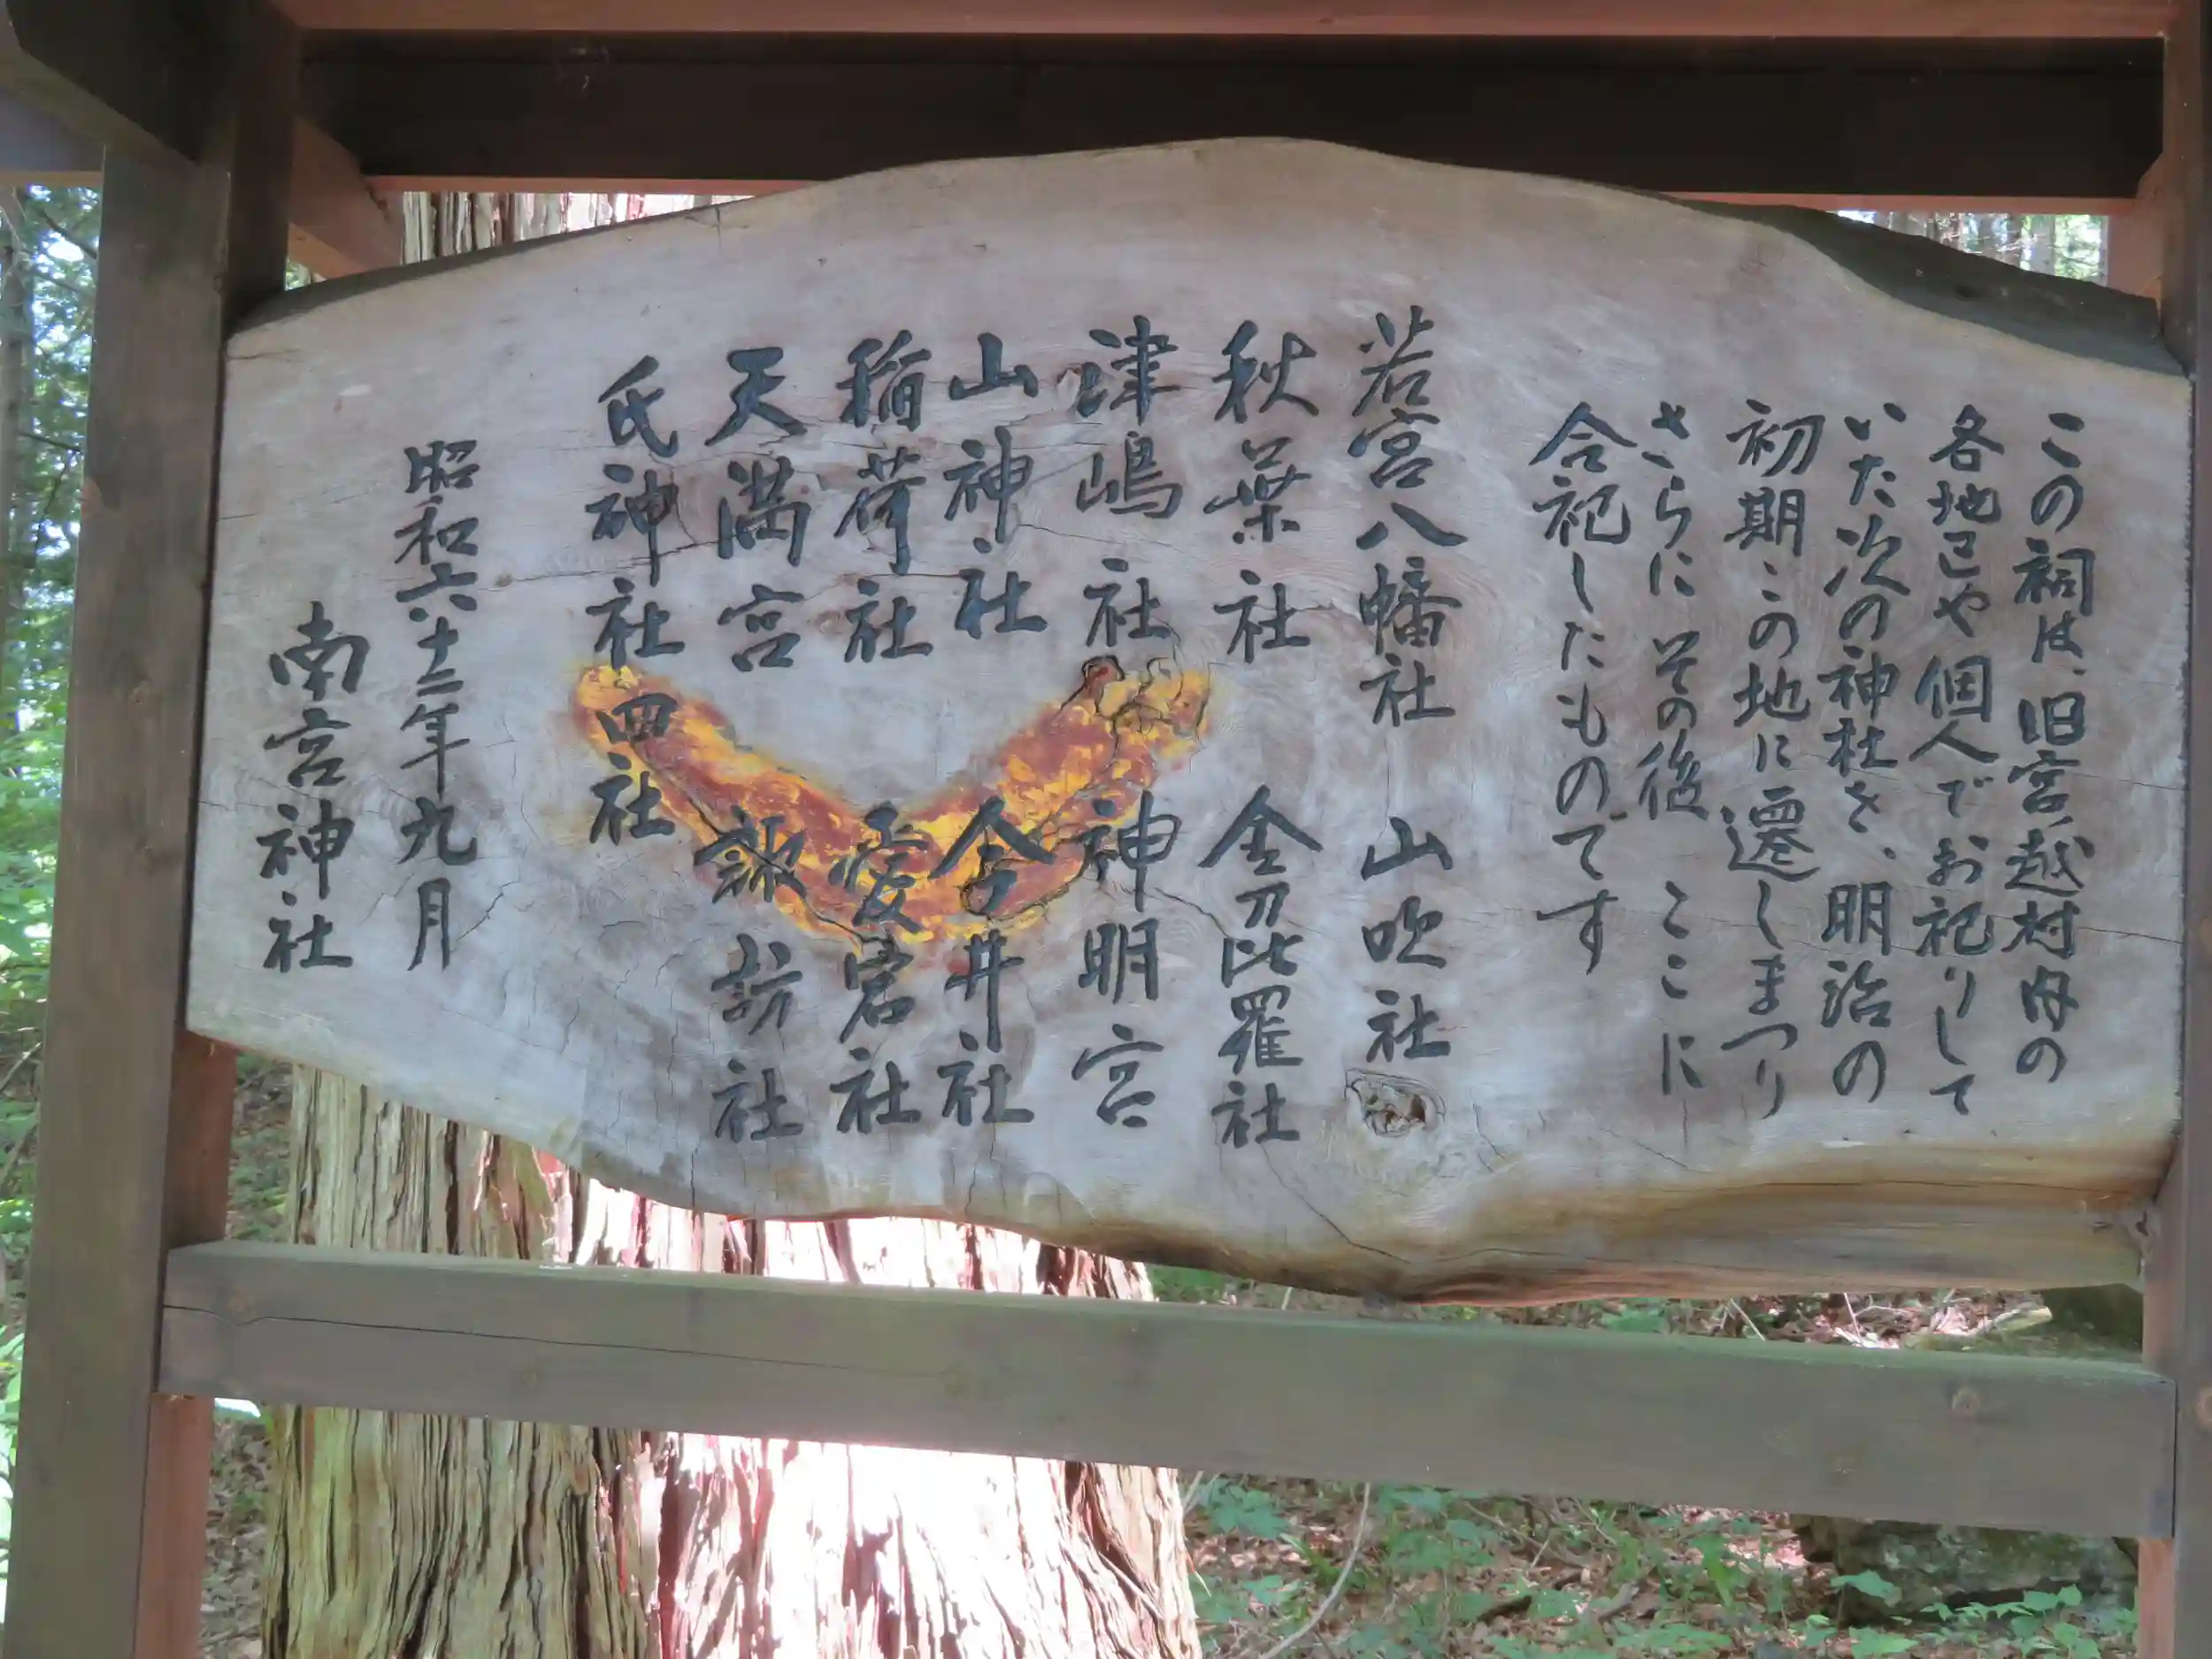 この祠は、旧宮越村内の
各地区や個人でお祀りして
いた次の神社を、明治の
初期この地に遷しまつり
さらにその後 ここに
合祀したものです
若宮八幡社 山吹社
秋葉社 金刀比羅社
津嶋社 神明宮
山神社 今井社
稲荷社 愛宕社
天満宮 諏訪社
氏神社四社
昭和六十二年九月
南宮神社